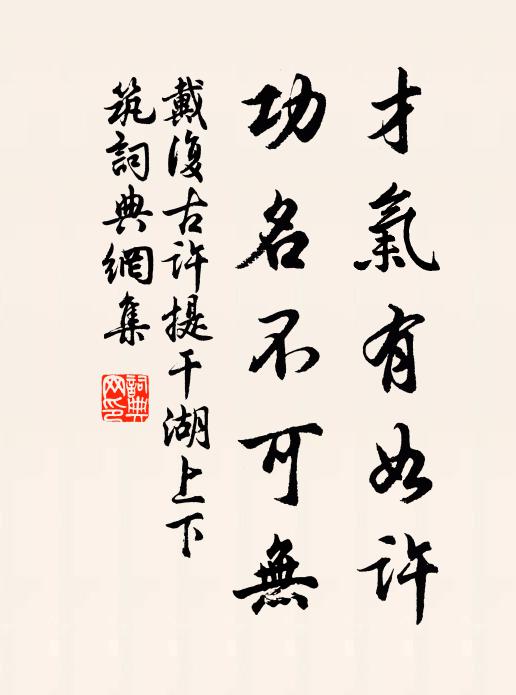 才氣有如許
功名不可無
戴復古許提干湖上下
筑詞典網集
詞典
网印